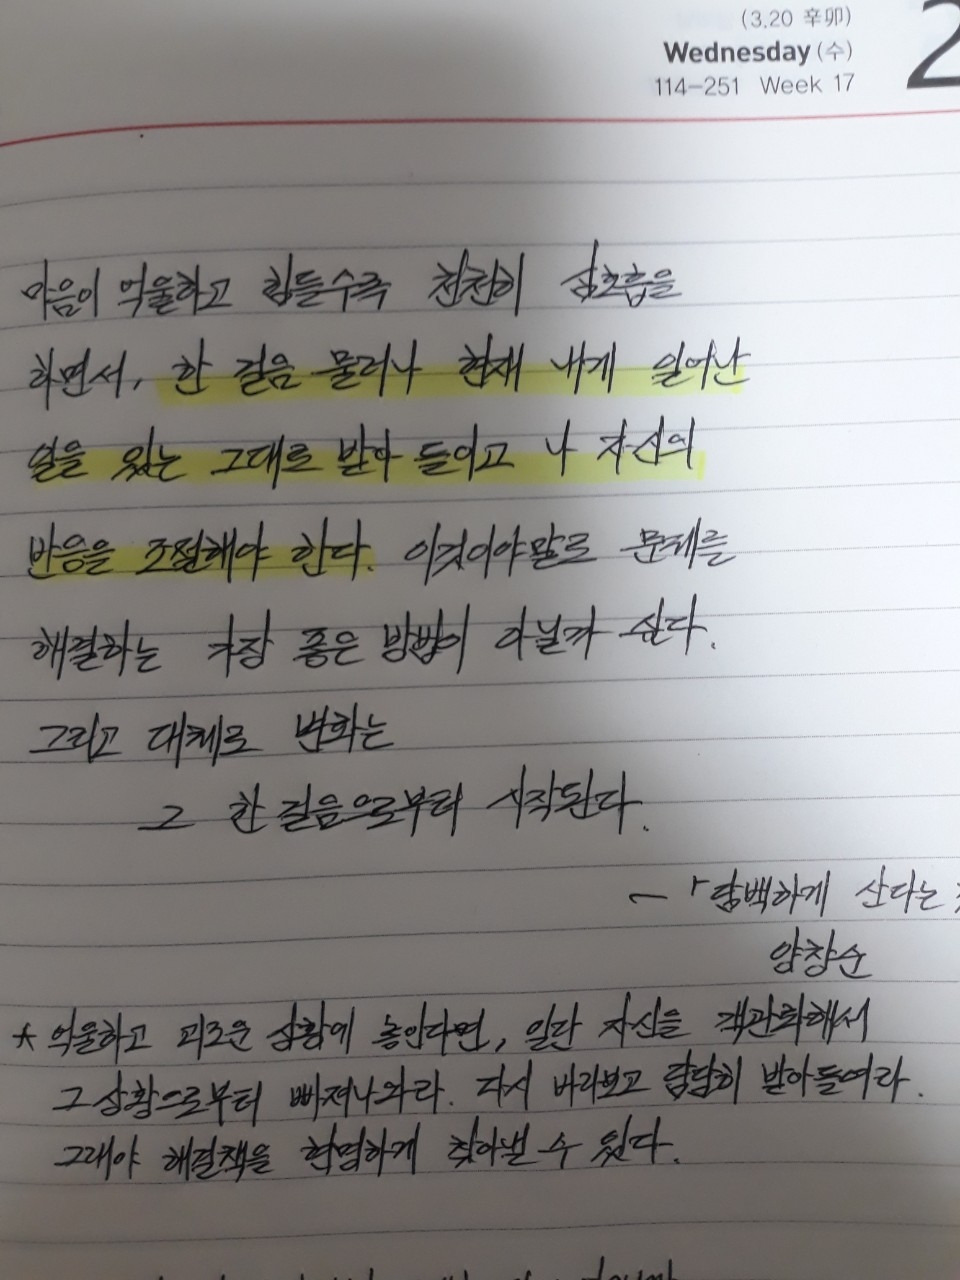 (3.20 辛卯)
Wednesday (수)
114-251 Week 17
2
마음이 억울하고 힘들수록 천천히 심호흡을
하면서, 한 걸음 물러나 현재 내게 일어난
일을 있는 그대로 받아 들이고 나 자신의
반응을 조절해야 한다. 이것이야말로 문제를
해결하는 가장 좋은 방법이 아닐까 싶다.
그리고 대체로 변화는
그 한 걸음으로부터 시작된다.
- 「담백하게 산다는
양창순
* 억울하고 괴로운 상황에 놓인다면, 일단 자신을 객관화해서
그 상황으로부터 빠져나와라. 다시 바라보고 담담히 받아들여라.
그래야 해결책을 현명하게 찾아낼 수 있다.